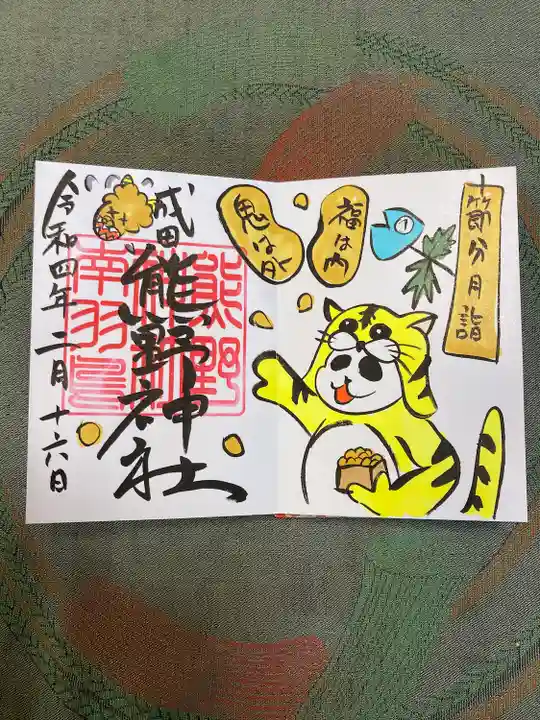 節分月詣
福は内
鬼は外
成田
熊野神社
熊野
南羽鳥
令和四年二月十六日